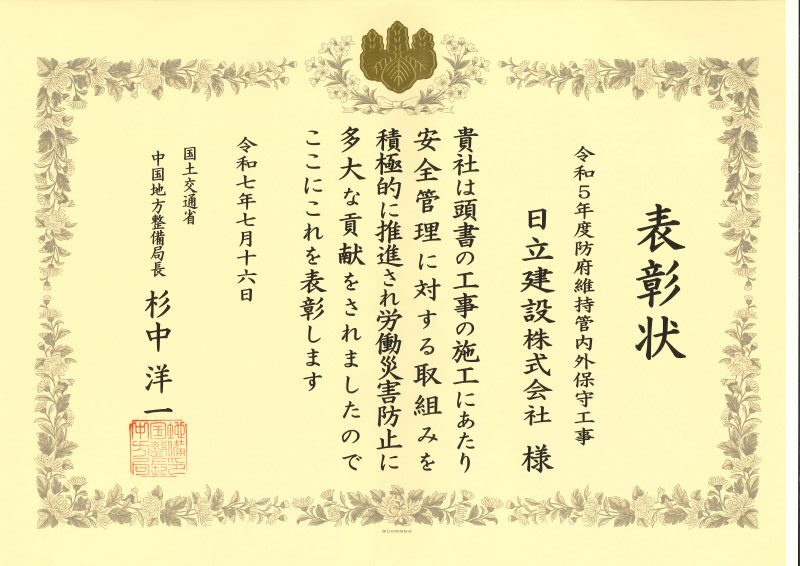 表彰状
令和5年度防府維持管内外保守工事
日立建設株式会社 様
貴社は頭書の工事の施工にあたり
安全管理に対する取組みを
積極的に推進され労働災害防止に
多大な貢献をされましたので
ここにこれを表彰します
令和七年七月十六日
国土交通省
中国地方整備局長 杉中洋一